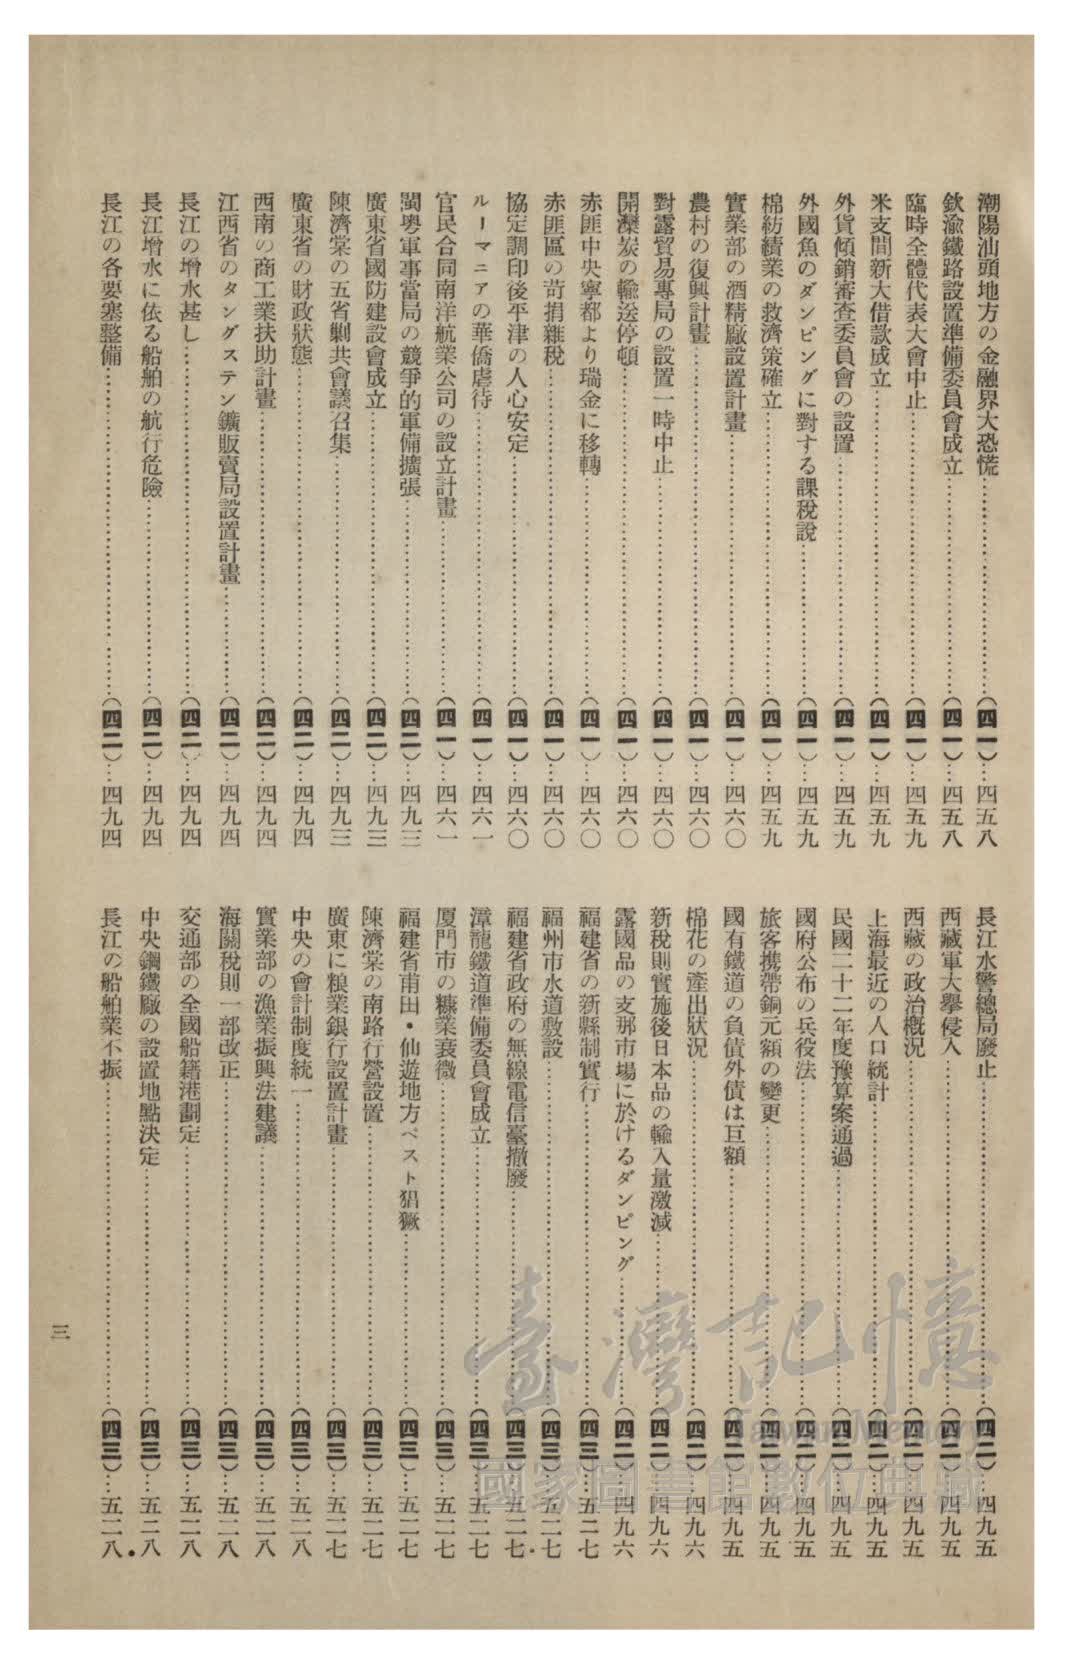 潮陽汕頭地方の金融界大恐慌……（四一）…四五八
欽渝鐵路設置準備委員會成立……（四一）…四五八
臨時全體代表大會中止……（四一）…四五九
米支間新大借款成立……（四一）…四五九
外貨傾銷審査委員會の設置……（四一）…四五九
外國魚のダンピングに對する課稅說……（四一）…四五九
棉紡績業の救濟策確立……（四一）…四五九
實業部の酒精廠設置計畫……（四一）…四六〇
農村の復興計畫……（四一）…四六〇
對露貿易專局の設置一時中止……（四一）…四六〇
開灤炭の輸送停頓……（四一）…四六〇
赤匪中央寧都より瑞金に移轉……（四一）…四六〇
赤匪區の苛捐雜稅……（四一）…四六〇
協定調印後平津の人心安定……（四一）…四六〇
ルーマニアの華僑虐待……（四一）…四六一
官民合同南洋航業公司の設立計畫……（四一）…四六一
閩粤軍事當局の競爭的軍備擴張……（四二）…四九三
廣東省國防建設會成立……（四二）…四九三
陳濟棠の五省剿共會議召集……（四二）…四九三
廣東省の財政狀態……（四二）…四九四
西南の商工業扶助計畫……（四二）…四九四
江西省のタングステン鑛販賣局設置計畫……（四二）…四九四
長江の增水甚し……（四二）…四九四
長江增水に依る船舶の航行危險……（四二）…四九四
長江の各要塞整備……（四二）…四九四
長江水警總局廢止……（四二）…四九五
西藏軍大擧侵入……（四二）…四九五
西藏の政治槪況……（四二）…四九五
上海最近の人口統計……（四二）…四九五
民國二十二年度豫算案通過……（四二）…四九五
國府公布の兵役法……（四二）…四九五
旅客携帶銅元額の變更……（四二）…四九五
國有鐵道の負債外債は巨額……（四二）…四九五
棉花の產出狀況……（四二）…四九六
新稅則實施後日本品の輸入量激減……（四二）…四九六
露國品の支那市場に於けるダンピング……（四二）…四九六
福建省の新縣制實行……（四三）…五二七
福州市水道敷設……（四三）…五二七
福建省政府の無線電信臺撤廢……（四三）…五二七
漳龍鐵道準備委員會成立……（四三）…五二七
厦門市の糠業衰微……（四三）…五二七
福建省甫田・仙遊地方ペスト猖獗……（四三）…五二七
陳濟棠の南路行營設置……（四三）…五二七
廣東に粮業銀行設置計畫……（四三）…五二七
中央の會計制度統一……（四三）…五二八
實業部の漁業振興法建議……（四三）…五二八
海關稅則一部改正……（四三）…五二八
交通部の全國船籍港劃定……（四三）…五二八
中央鋼鐵廠の設置地點決定……（四三）…五二八
長江の船舶業不振……（四三）…五二八
三
臺灣記憶
Taiwan Memory
國家圖書館數位典藏